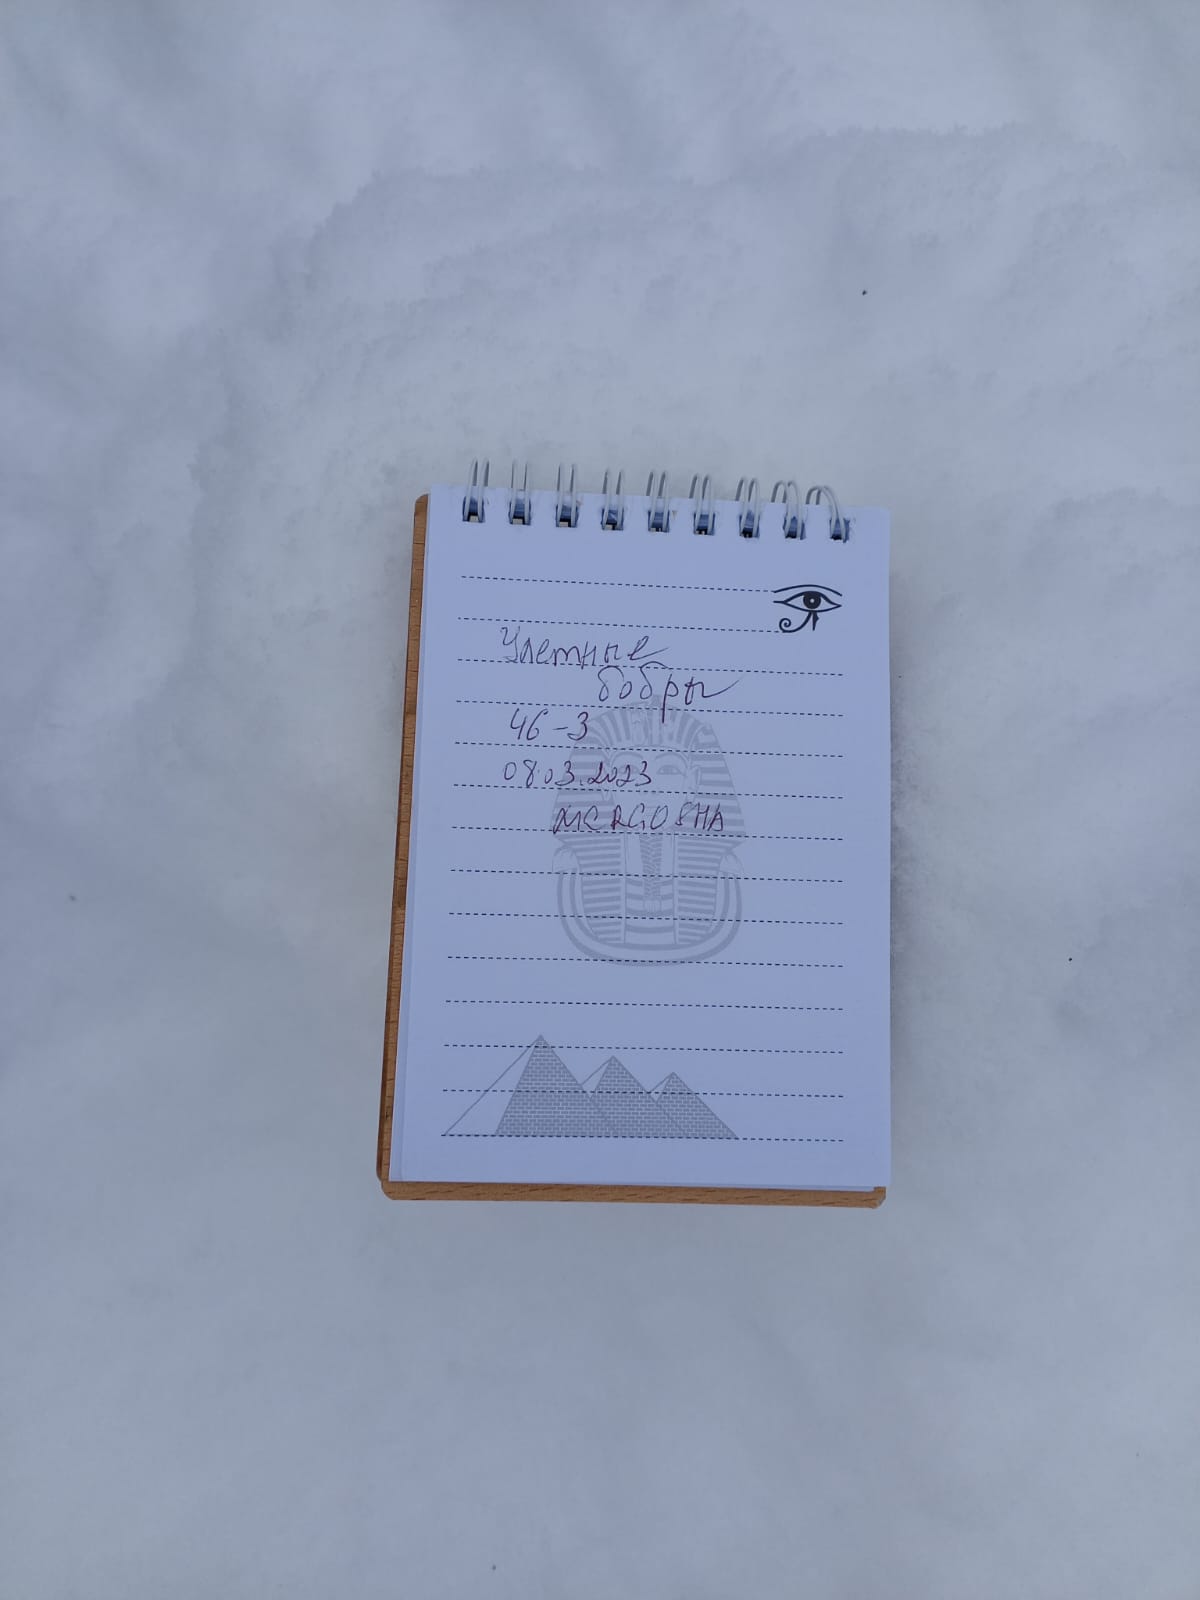 Улетные
бобры
46-3
08.03.2023
MERGOSHA